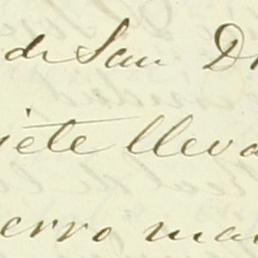 de San D
iete lleva
erro ma